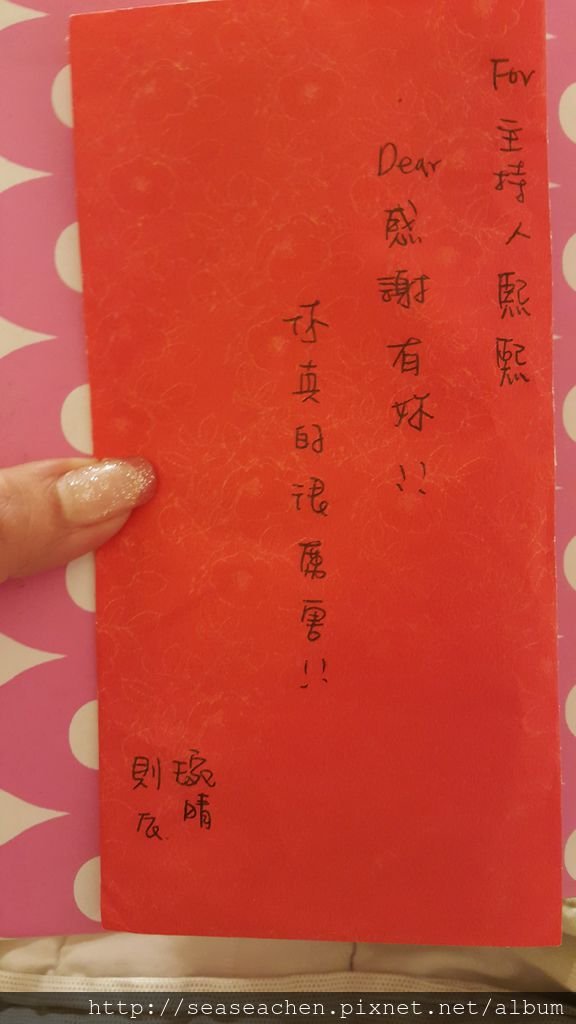 For 主持人熙熙
Dear 感謝有妳!!
你真的很厲害!!
琬晴
則辰
http://seaseachen.pixnet.net/album